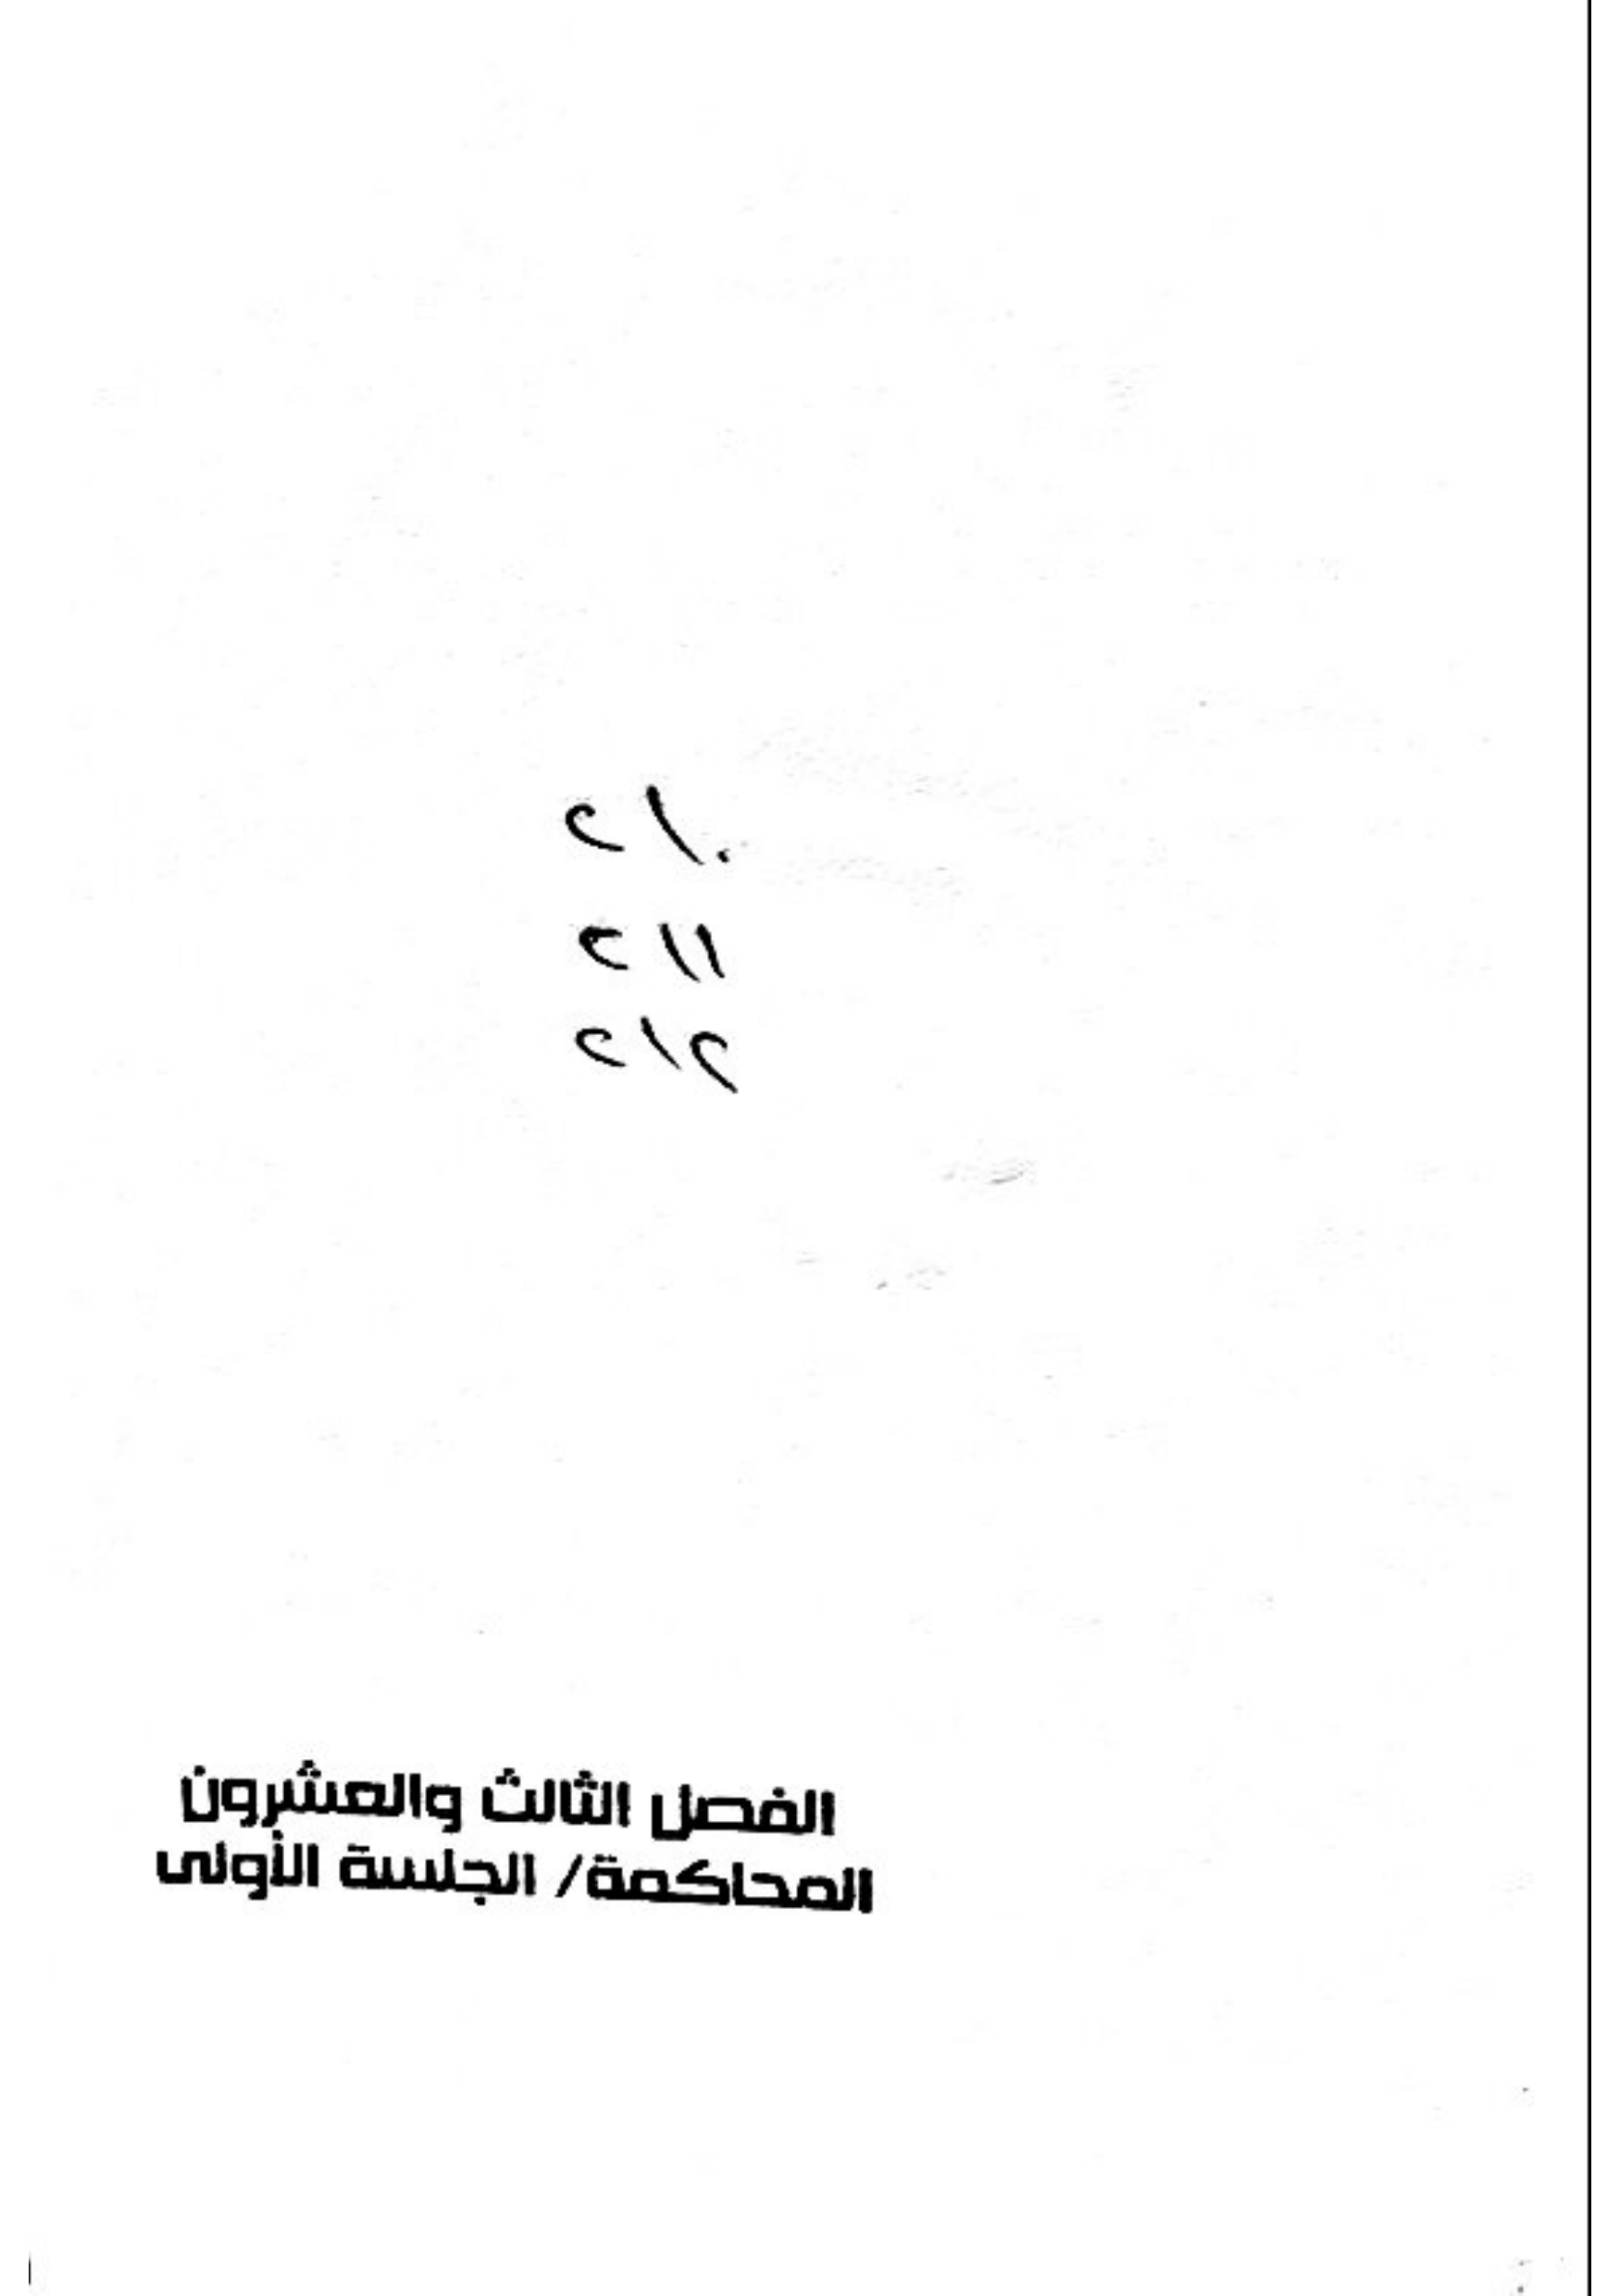 ٢١٠
٢١١
٢١٢
الفصل الثالث والعشرون
المحاكمة/ الجلسة الأولى